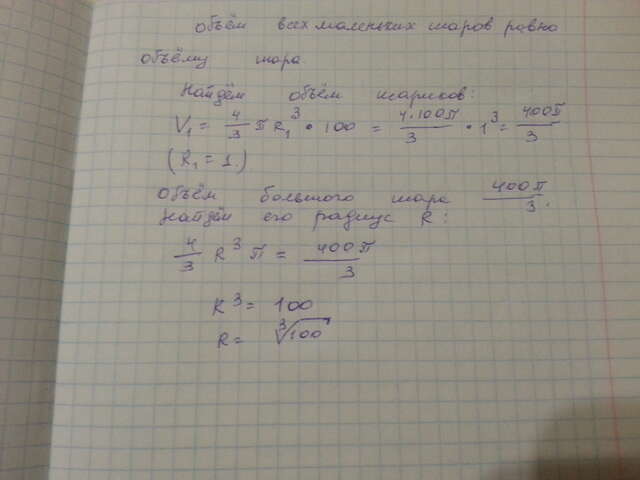 Объём всех маленьких шаров равна
объёму шара.
Найдём объём шариков:
V₁ = 4/3 π R₁³ · 100 = 4·100π/3 · 1³ = 400π/3
(R₁ = 1.)
Объём большого шара 400π/3.
Найдём его радиус R:
4/3 R³ π = 400π/3
R³ = 100
R = ³√100